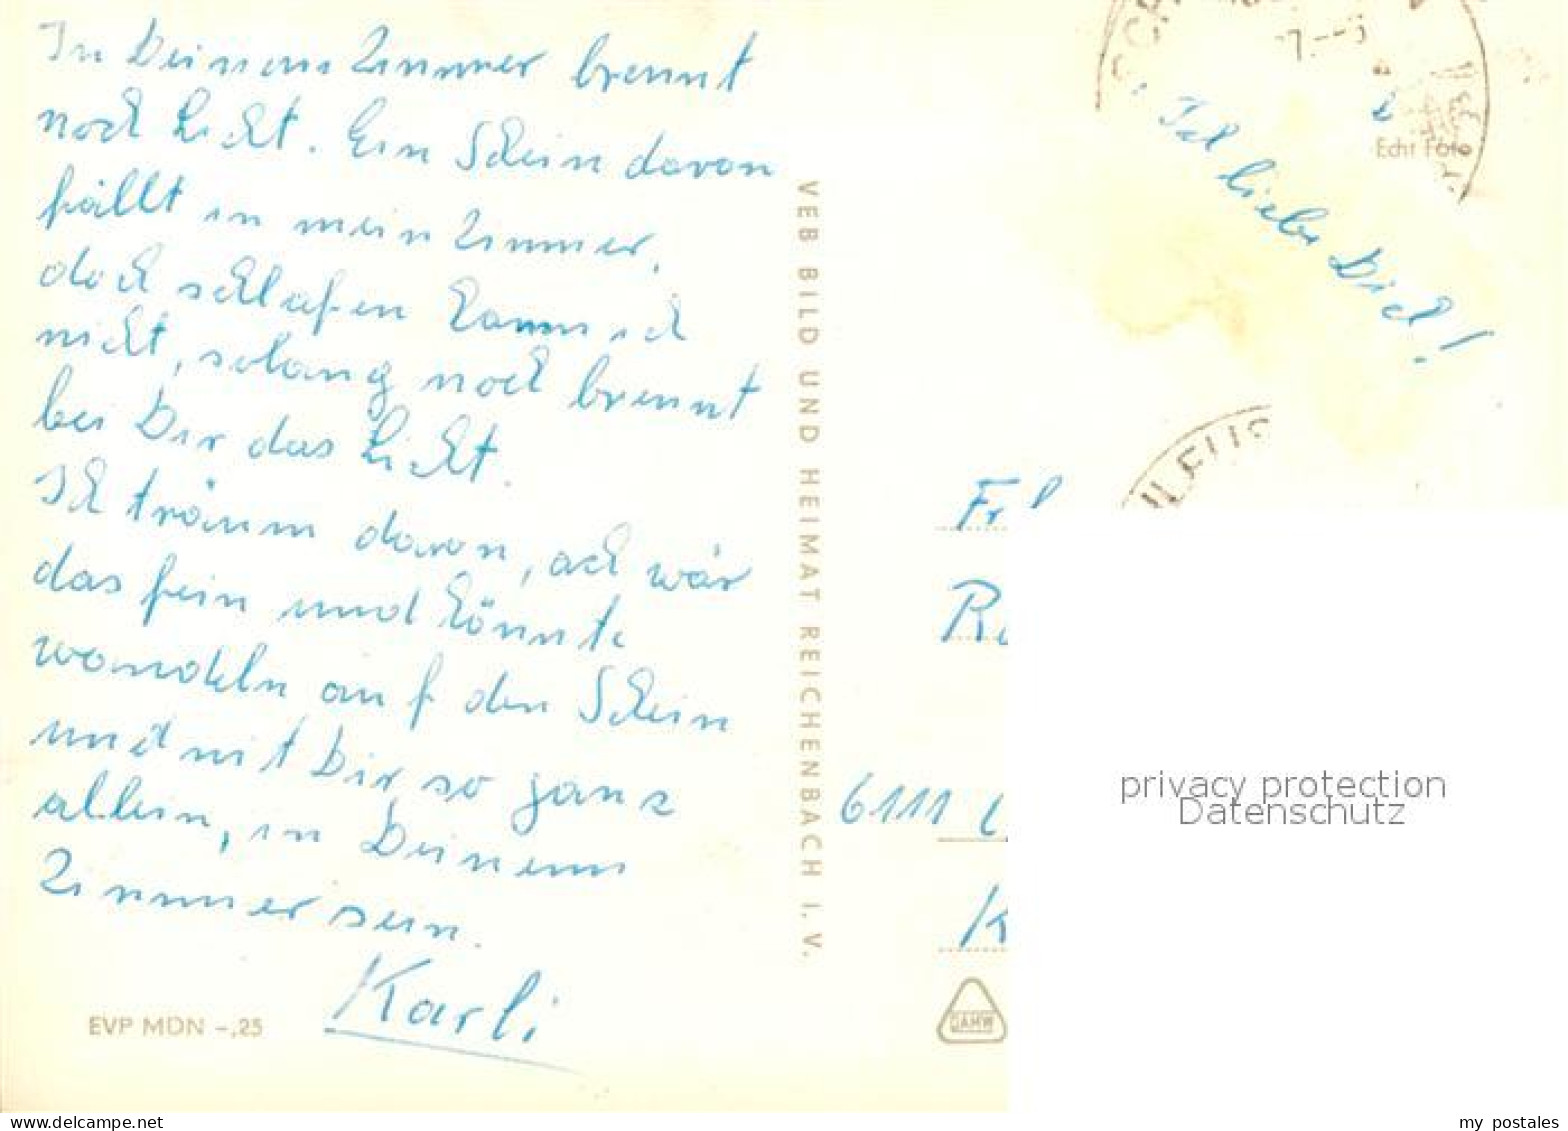 In Deinem Zimmer brennt
noch Licht. Ein Schein davon
fällt in mein Zimmer,
doch schlafen kann ich
nicht, solang noch brennt
bei Dir das Licht.
Ich träum davon, ach wär
das fein und könnte
wandeln auf den Schein
und mit Dir so ganz
allein, in Deinem
Zimmer sein.
Karli
EVP MDN -,25
VEB BILD UND HEIMAT REICHENBACH I. V.
Echt Foto
Ich liebe Dich!
Frl
6111
K
DAMW
privacy protection
Datenschutz
delcampe.net
my_postales